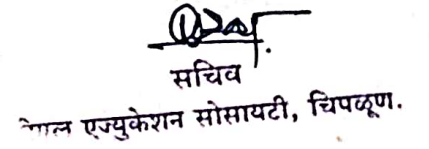 सचिव
एज्युकेशन सोसायटी, चिपळूण.